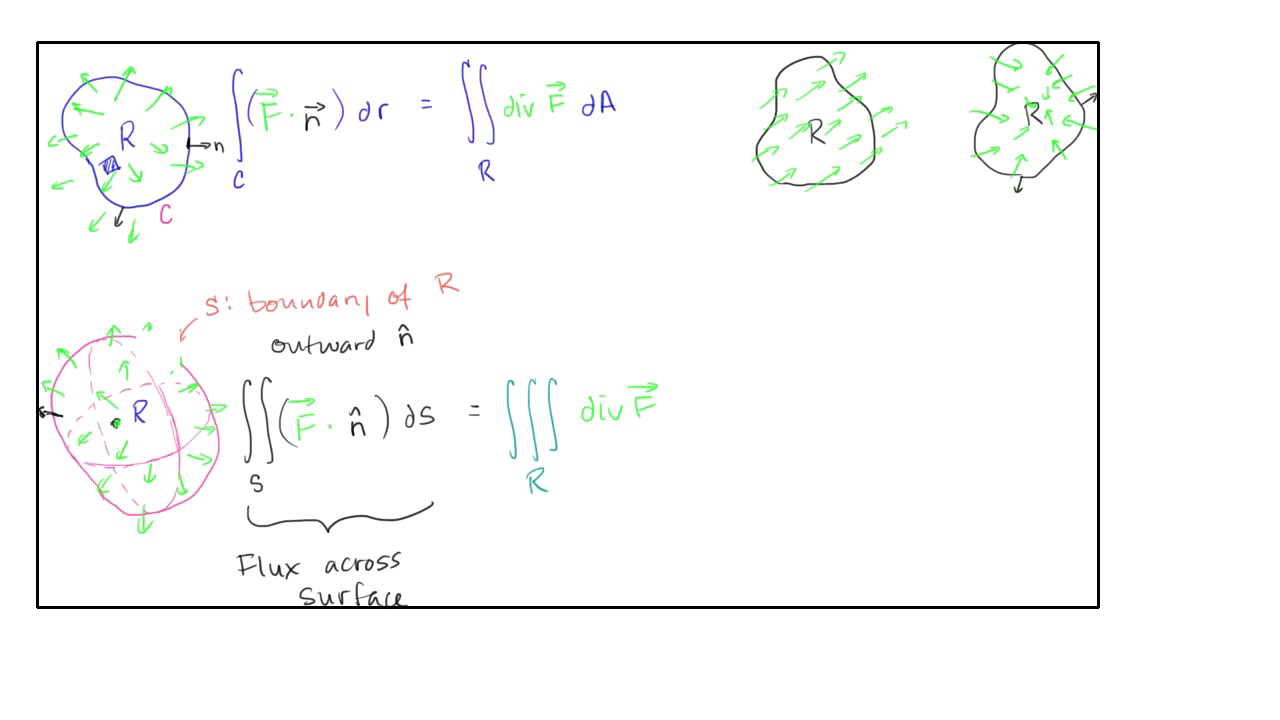 R
n
C
∫ (F⃗ · n⃗) dr = ∬ div F⃗ dA
C
R
R
R
S: boundary of R
outward n̂
R
∬ (F⃗ · n̂) dS = ∭ div F⃗
S
R
Flux across
surface